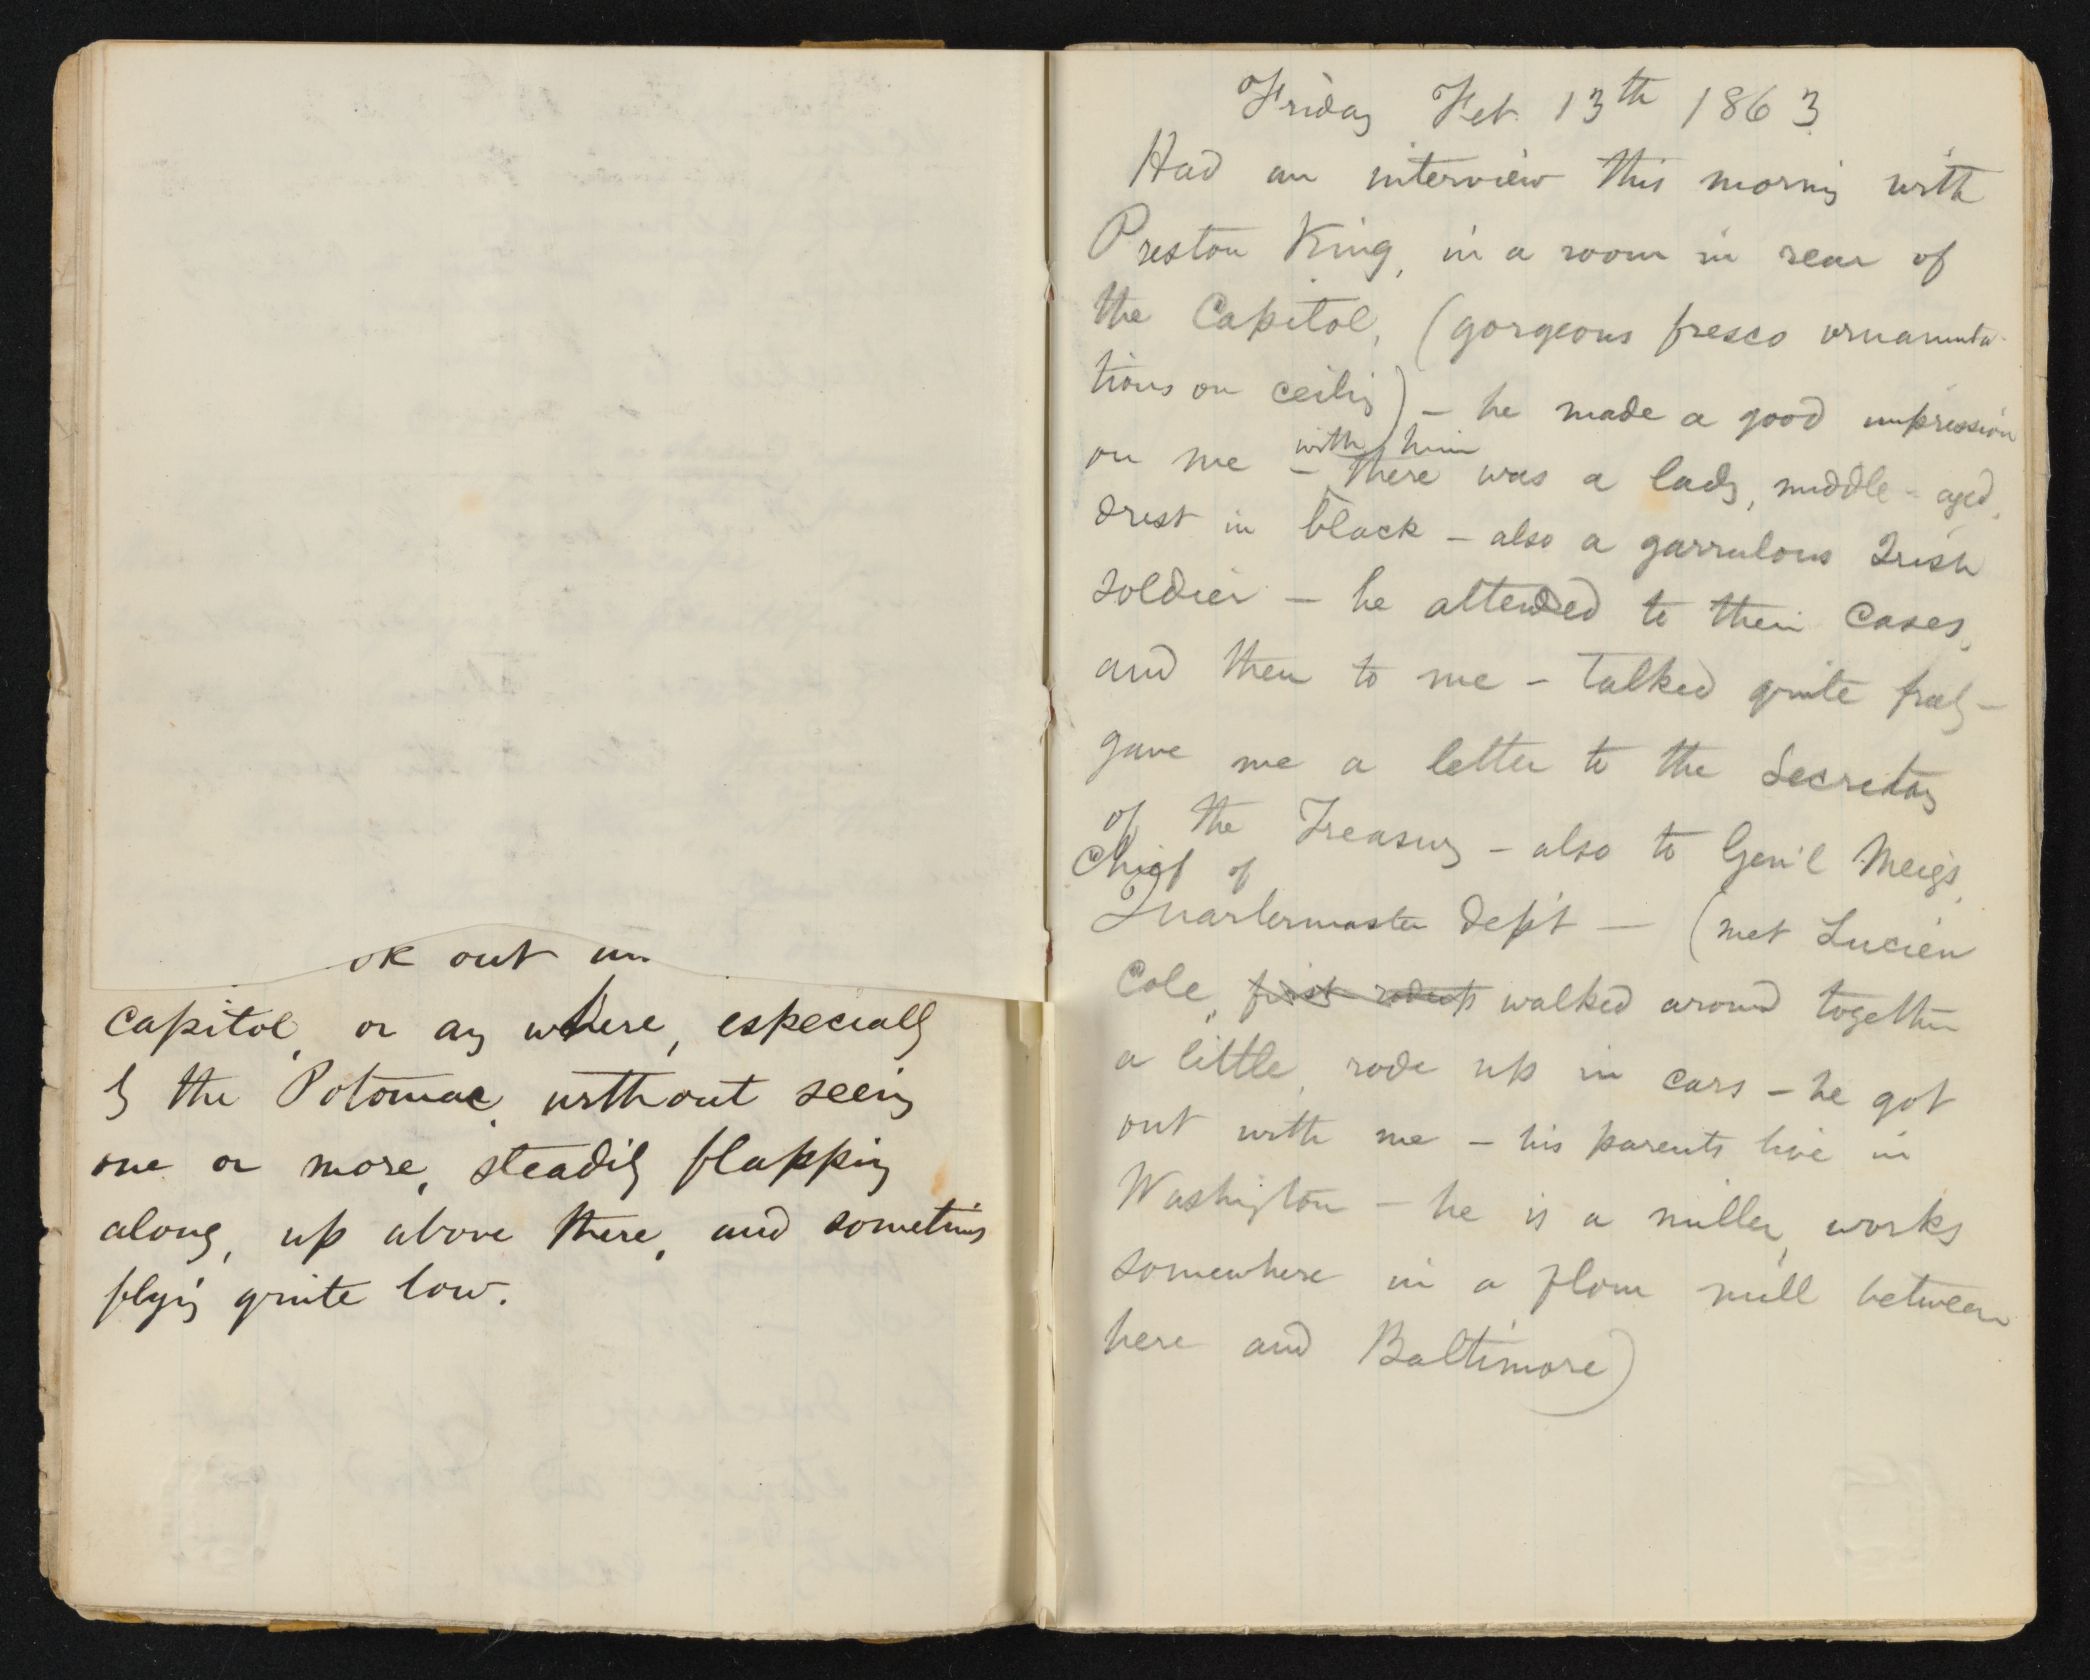 ok out
capitol, or any where, especially
by the Potomac, without seeing
one or more, steadily flapping
along, up above there, and sometimes
flying quite low.
Friday Feb. 13th 1863
Had an interview this morning with
Preston King, in a room in rear of
the Capitol, (gorgeous fresco ornamenta-
tions on ceiling) – he made a good impression
on me – with him there was a lady, middle-aged,
drest in black – also a garrulous Irish
soldier – he attended to their cases,
and then to me – talked quite freely –
gave me a letter to the Secretary
of the Treasury – also to Gen'l Meigs,
Chief of
Quartermaster Dep't — (met Lucien
Cole, first walked around together
a little, rode up in cars – he got
out with me – his parents live in
Washington – he is a miller, works
somewhere in a flour mill between
here and Baltimore)